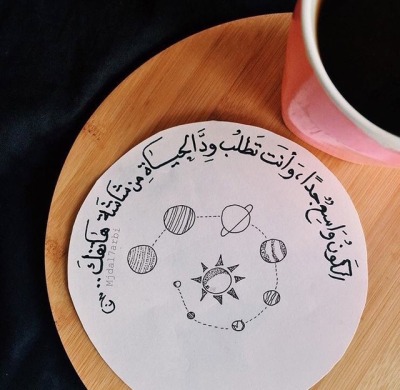 الكَونُ وَاسِعٌ جدًا، وَأنتَ تَطلُب وِدَّ الحيَاةِ مِن شَاشَة هَاتفِكَ...
Mjdal7arbi